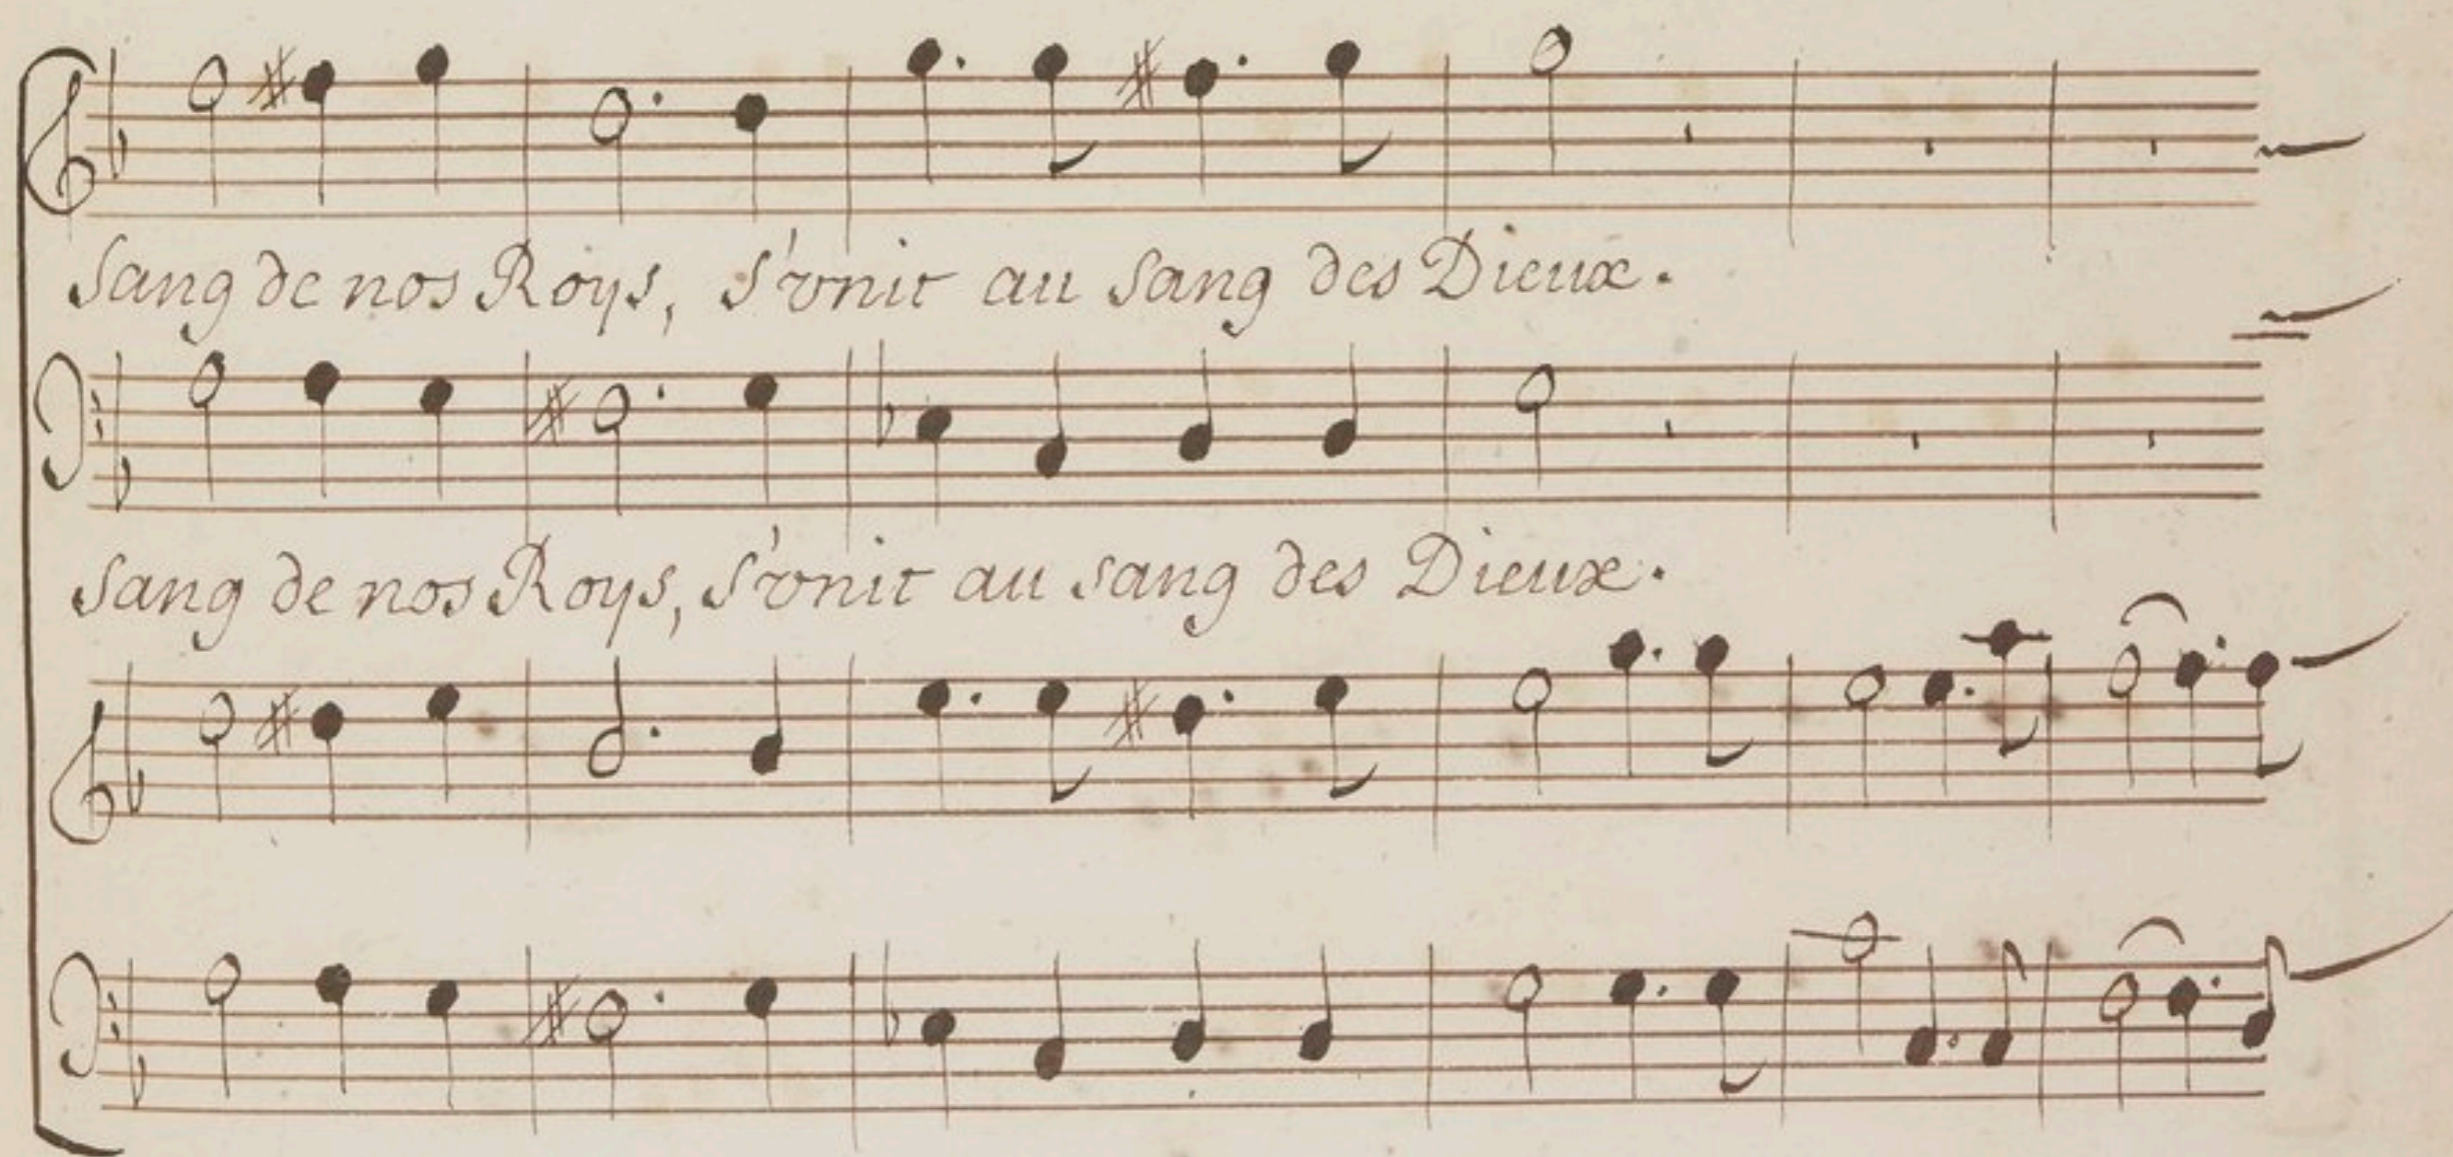 Sang de nos Roys, s'vnit au sang des Dieux.
Sang de nos Roys, s'vnit au sang des Dieux.